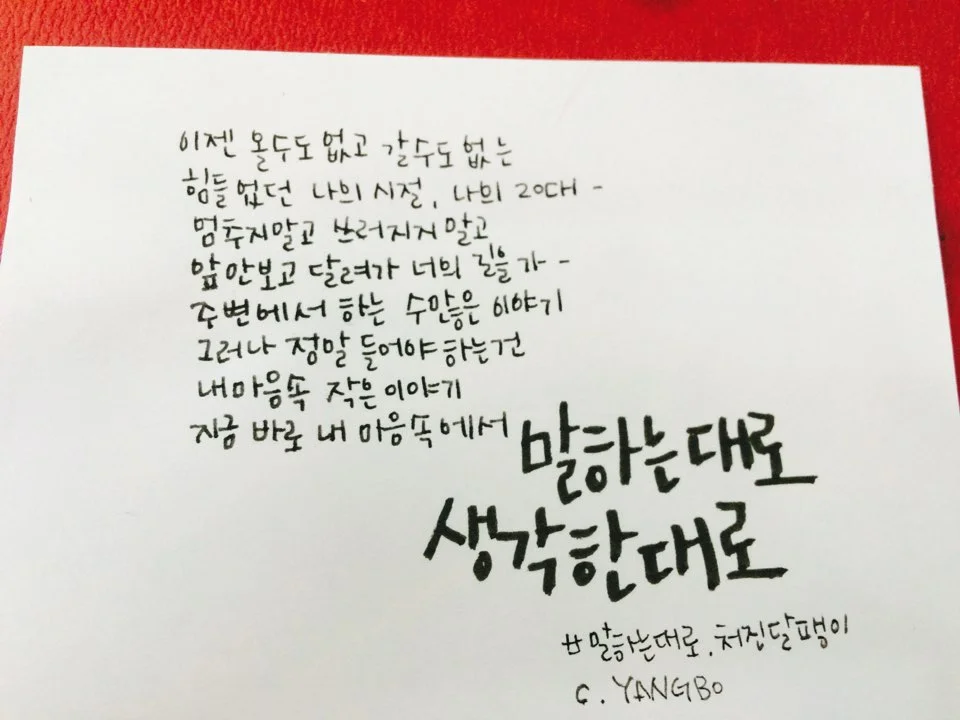 이젠 올수도 없고 갈수도 없는
힘들었던 나의 시절, 나의 20대 -
멈추지말고 쓰러지지 말고
앞만보고 달려가 너의 길을 가 -
주변에서 하는 수많은 이야기
그러나 정말 들어야 하는건
내 마음속 작은 이야기
지금 바로 내 마음속에서 말하는대로
생각한대로
# 말하는대로. 처진달팽이
c. YANGBO